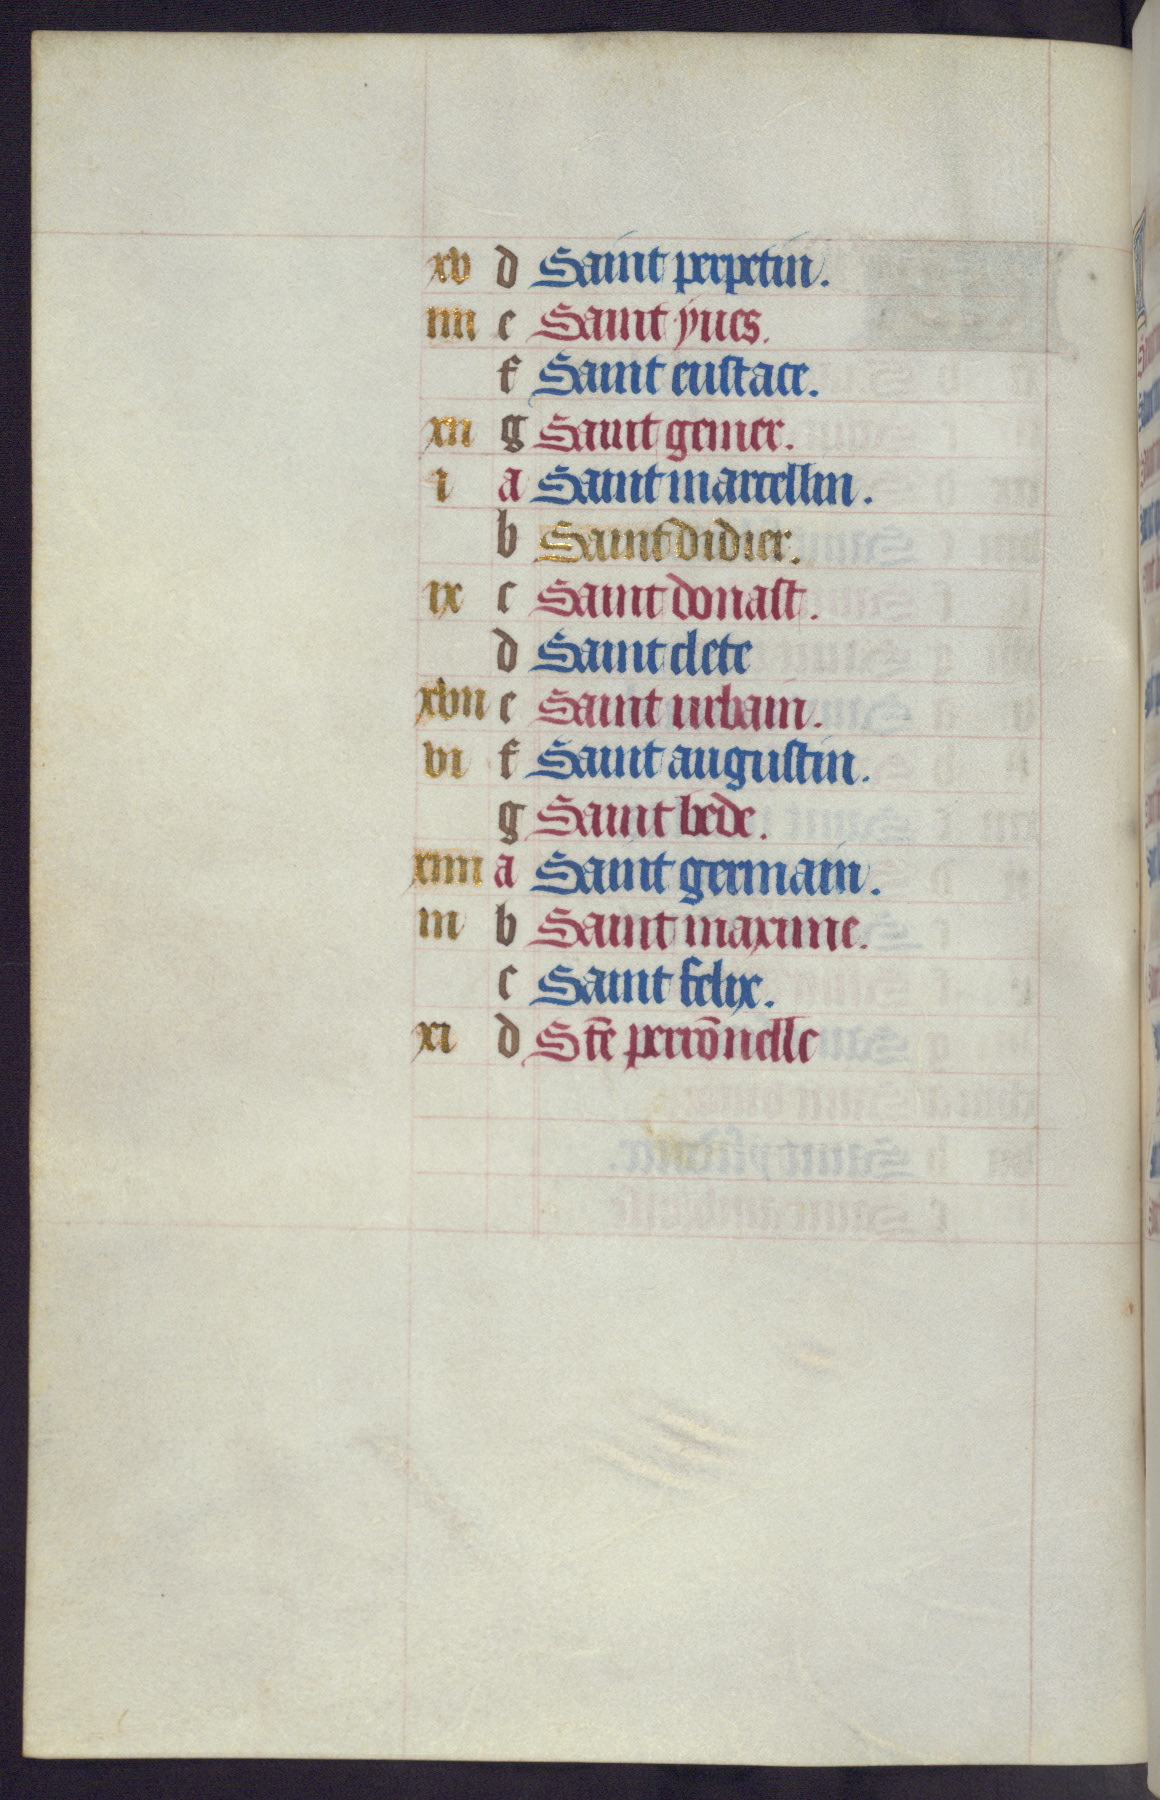 xv d Saint perpetin.
iiii e Saint yues.
f Saint eustace.
xii g Saint genier.
i a Saint marcellin.
b Saint didier.
ix c Saint donast.
d Saint clete
xvii e Saint urbain.
vi f Saint augustin.
g Saint bede.
xiiii a Saint germain.
iii b Saint maxime.
c Saint felix.
xi d Ste perrõnelle